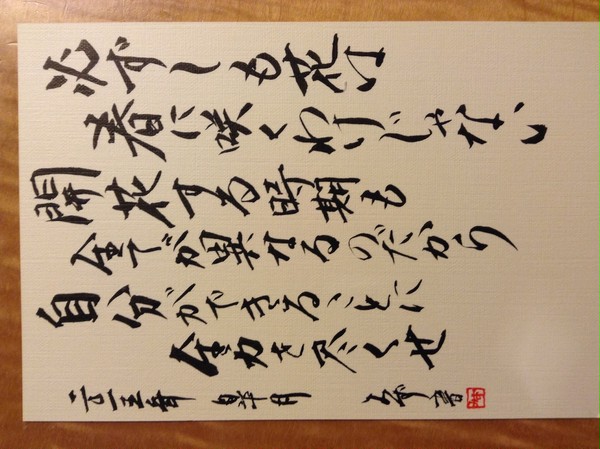 必ずしも花は
春に咲くわけじゃない
開花する時期も
全てが異なるのだから
自分ができることに
全力を尽くせ
二〇一五年 皐月 書